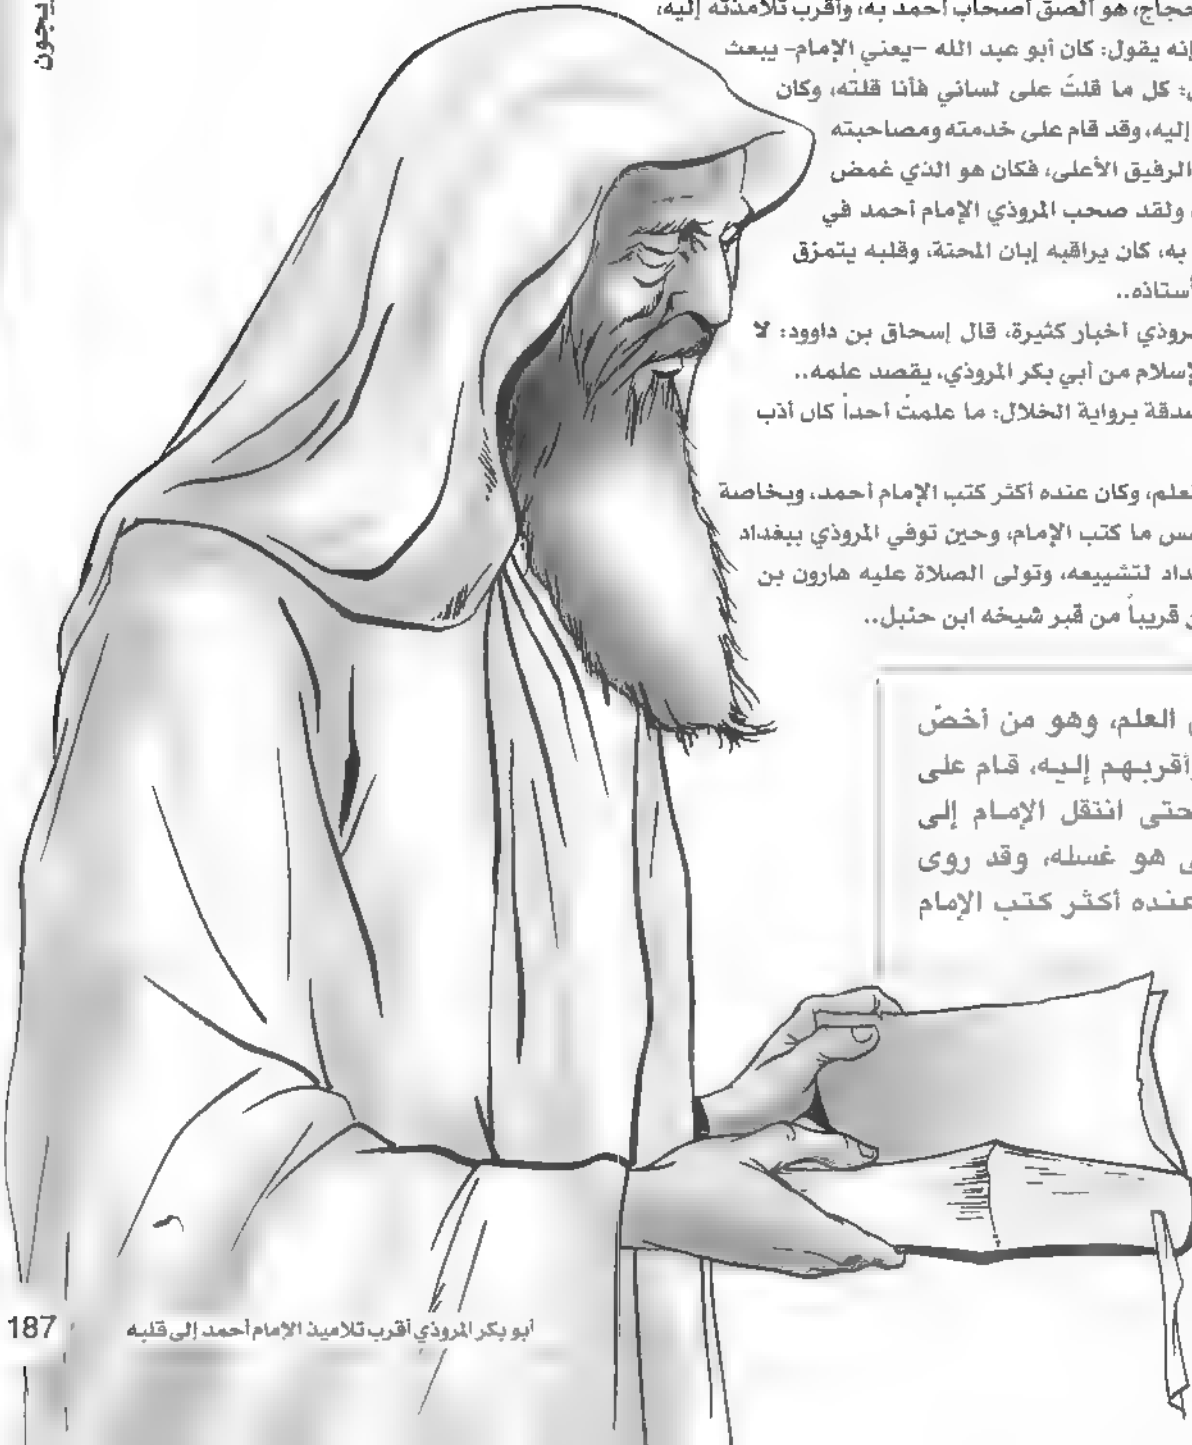 حجاج، هو ألصق أصحاب أحمد به، وأقرب تلامذته إليه،
إنه يقول: كان أبو عبد الله -يعني الإمام- يبعث
كل ما قلتَ على لساني فأنا قلتُه، وكان
إليه، وقد قام على خدمته ومصاحبته
الرفيق الأعلى، فكان هو الذي غمض
ولقد صحب المروذي الإمام أحمد في
به، كان يراقبه إبان المحنة، وقلبه يتمزق
أستاذه..
روذي أخبار كثيرة، قال إسحاق بن داوود: لا
لإسلام من أبي بكر المروذي، يقصد علمه..
صدقة برواية الخلال: ما علمتُ أحداً كان أذب
لعلم، وكان عنده أكثر كتب الإمام أحمد، وبخاصة
مس ما كتب الإمام، وحين توفي المروذي ببغداد
داد لتشييعه، وتولى الصلاة عليه هارون بن
قريباً من قبر شيخه ابن حنبل..
العلم، وهو من أخصّ
وأقربهم إليه، قام على
حتى انتقل الإمام إلى
هو غسله، وقد روى
عنده أكثر كتب الإمام
أبو بكر المروذي أقرب تلاميذ الإمام أحمد إلى قلبه
187